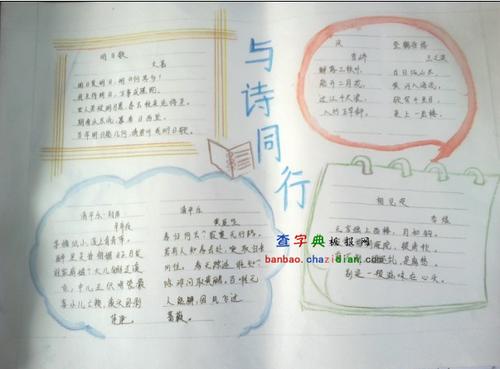 明日歌
文嘉
明日复明日,明日何其多!
我生待明日,万事成蹉跎。
世人若被明日累,春去秋来老将至。
朝看水东流,暮看日西坠。
百年明日能几何,请君听我明日歌。
与诗同行
风
李峤
解落三秋叶,
能开二月花。
过江千尺浪,
入竹万竿斜。
登鹳雀楼
王之涣
白日依山尽,
黄河入海流。
欲穷千里目,
更上一层楼。
清平乐·村居
辛弃疾
茅檐低小,溪上青青草。
醉里吴音相媚好,白发
谁家翁媪?大儿锄豆溪
东,中儿正织鸡笼。最
喜小儿亡赖,溪头卧剥
莲蓬。
清平乐
黄庭坚
春归何处?寂寞无行路。
若有人知春去处,唤取归来
同住。春无踪迹谁知?
除非问取黄鹂。百啭无
人能解,因风飞过
蔷薇。
相见欢
李煜
无言独上西楼,月如钩。
庭院,锁清秋。
乱,是离愁。
别是一般滋味在心头。
查字典 板报网
banbao.chazidian.com